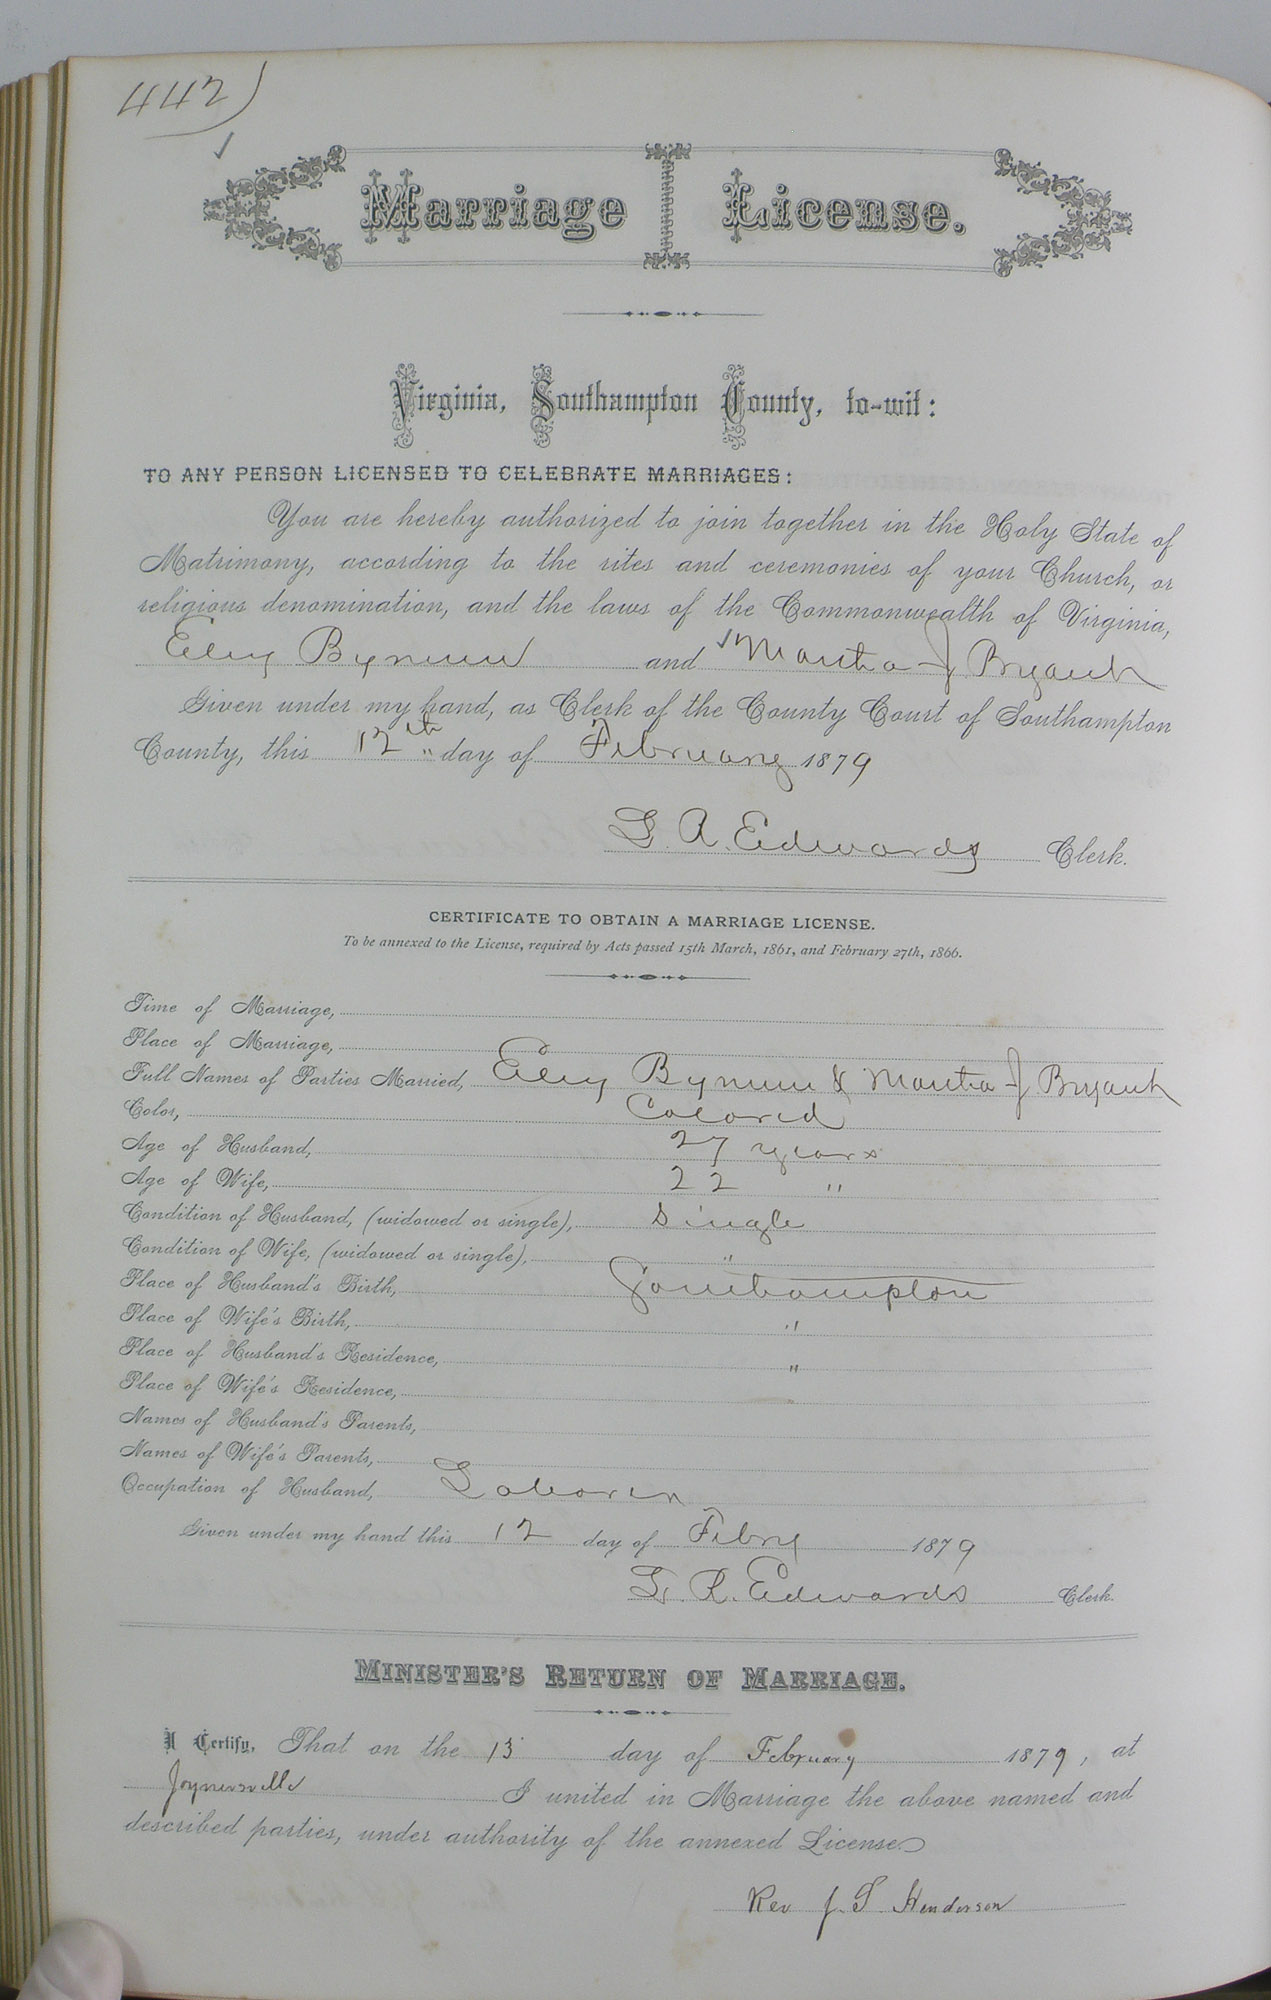 442)
Marriage License.
Virginia, Southampton County, to-wit:
TO ANY PERSON LICENSED TO CELEBRATE MARRIAGES:
You are hereby authorized to join together in the Holy State of
Matrimony, according to the rites and ceremonies of your Church, or
religious denomination, and the laws of the Commonwealth of Virginia,
Eley Bynum and Martha J Bryant
Given under my hand, as Clerk of the County Court of Southampton
County, this 12th day of February 1879
L. R. Edwards Clerk.
CERTIFICATE TO OBTAIN A MARRIAGE LICENSE.
To be annexed to the License, required by Acts passed 15th March, 1861, and February 27th, 1866.
Time of Marriage,
Place of Marriage,
Full Names of Parties Married, Eley Bynum & Martha J Bryant
Color, Colored
Age of Husband, 27 years
Age of Wife, 22 "
Condition of Husband, (widowed or single), Single
Condition of Wife, (widowed or single), "
Place of Husband's Birth, Southampton
Place of Wife's Birth, "
Place of Husband's Residence, "
Place of Wife's Residence,
Names of Husband's Parents,
Names of Wife's Parents,
Occupation of Husband, Laborer
Given under my hand this 12 day of Feby 1879
L. R. Edwards Clerk.
MINISTER'S RETURN OF MARRIAGE.
I Certify, That on the 13 day of February 1879, at
Joynersville I united in Marriage the above named and
described parties, under authority of the annexed License.
Rev J. S. Henderson